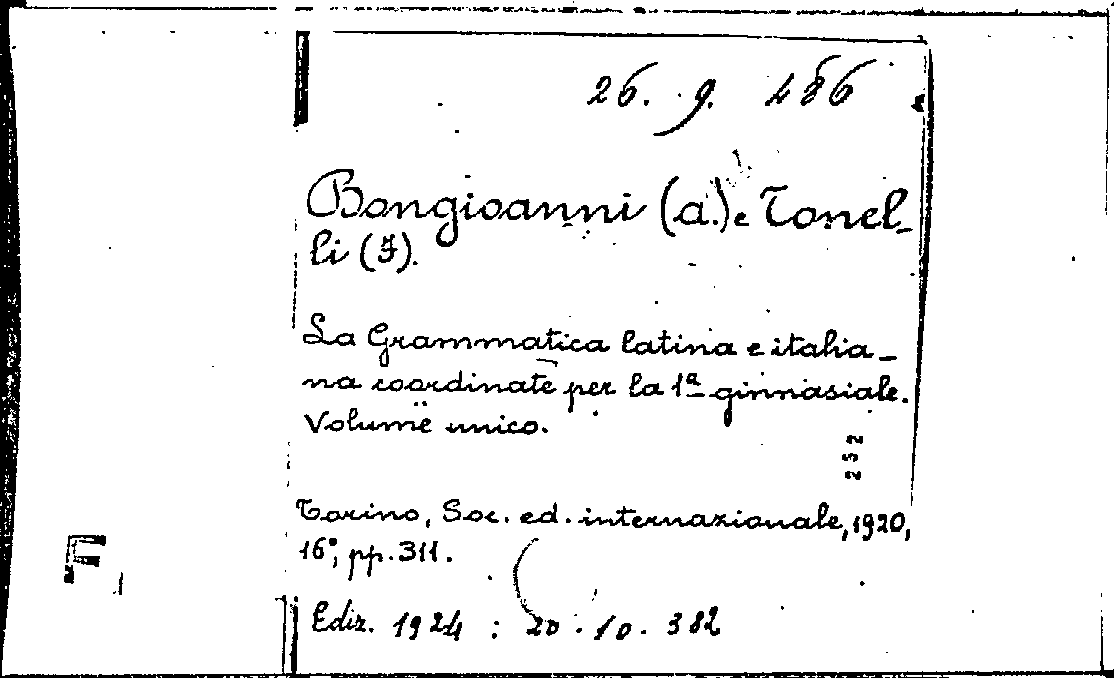 26. 9. 486
Bongioanni (A.) e Tonel-
li (F).
La Grammatica latina e italia-
na coordinate per la 1ª ginnasiale.
Volume unico.
252
Torino, Soc. ed. internazionale, 1920,
16°, pp. 311.
F
Ediz. 1924 : 20. 10. 382